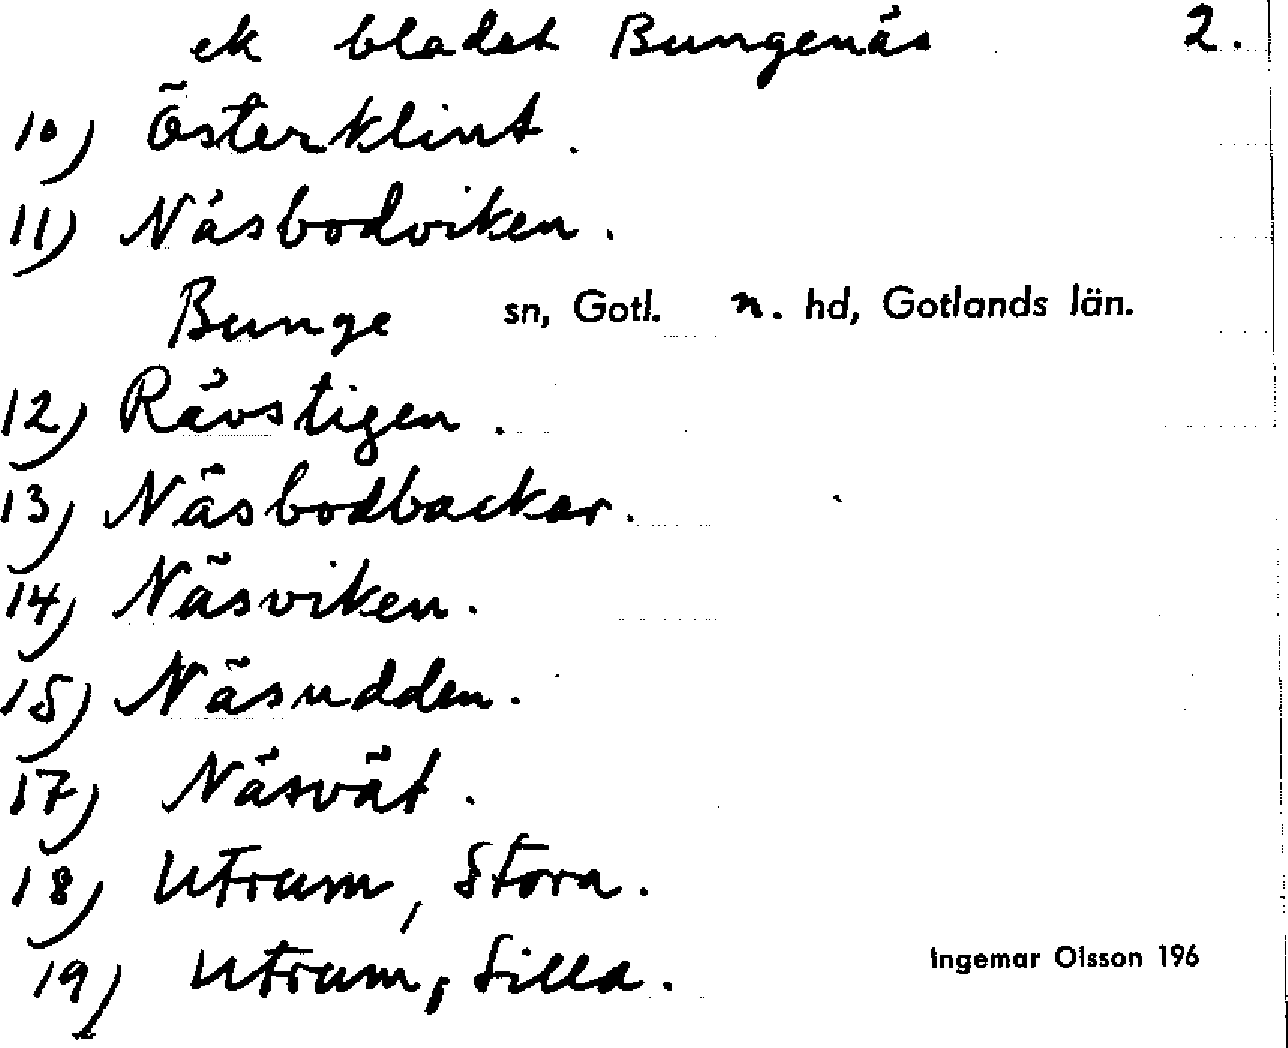 ek bladet Bungenäs 2.
10) Österklint.
11) Näsbodviken.
Bunge sn, Gotl. n. hd, Gotlands län.
12) Rävstigen.
13) Näsbodbackar.
14) Näsviken.
15) Näsudden.
17) Näsvät.
18) Utram, Stora.
19) Utram, Lilla.
Ingemar Olsson 196